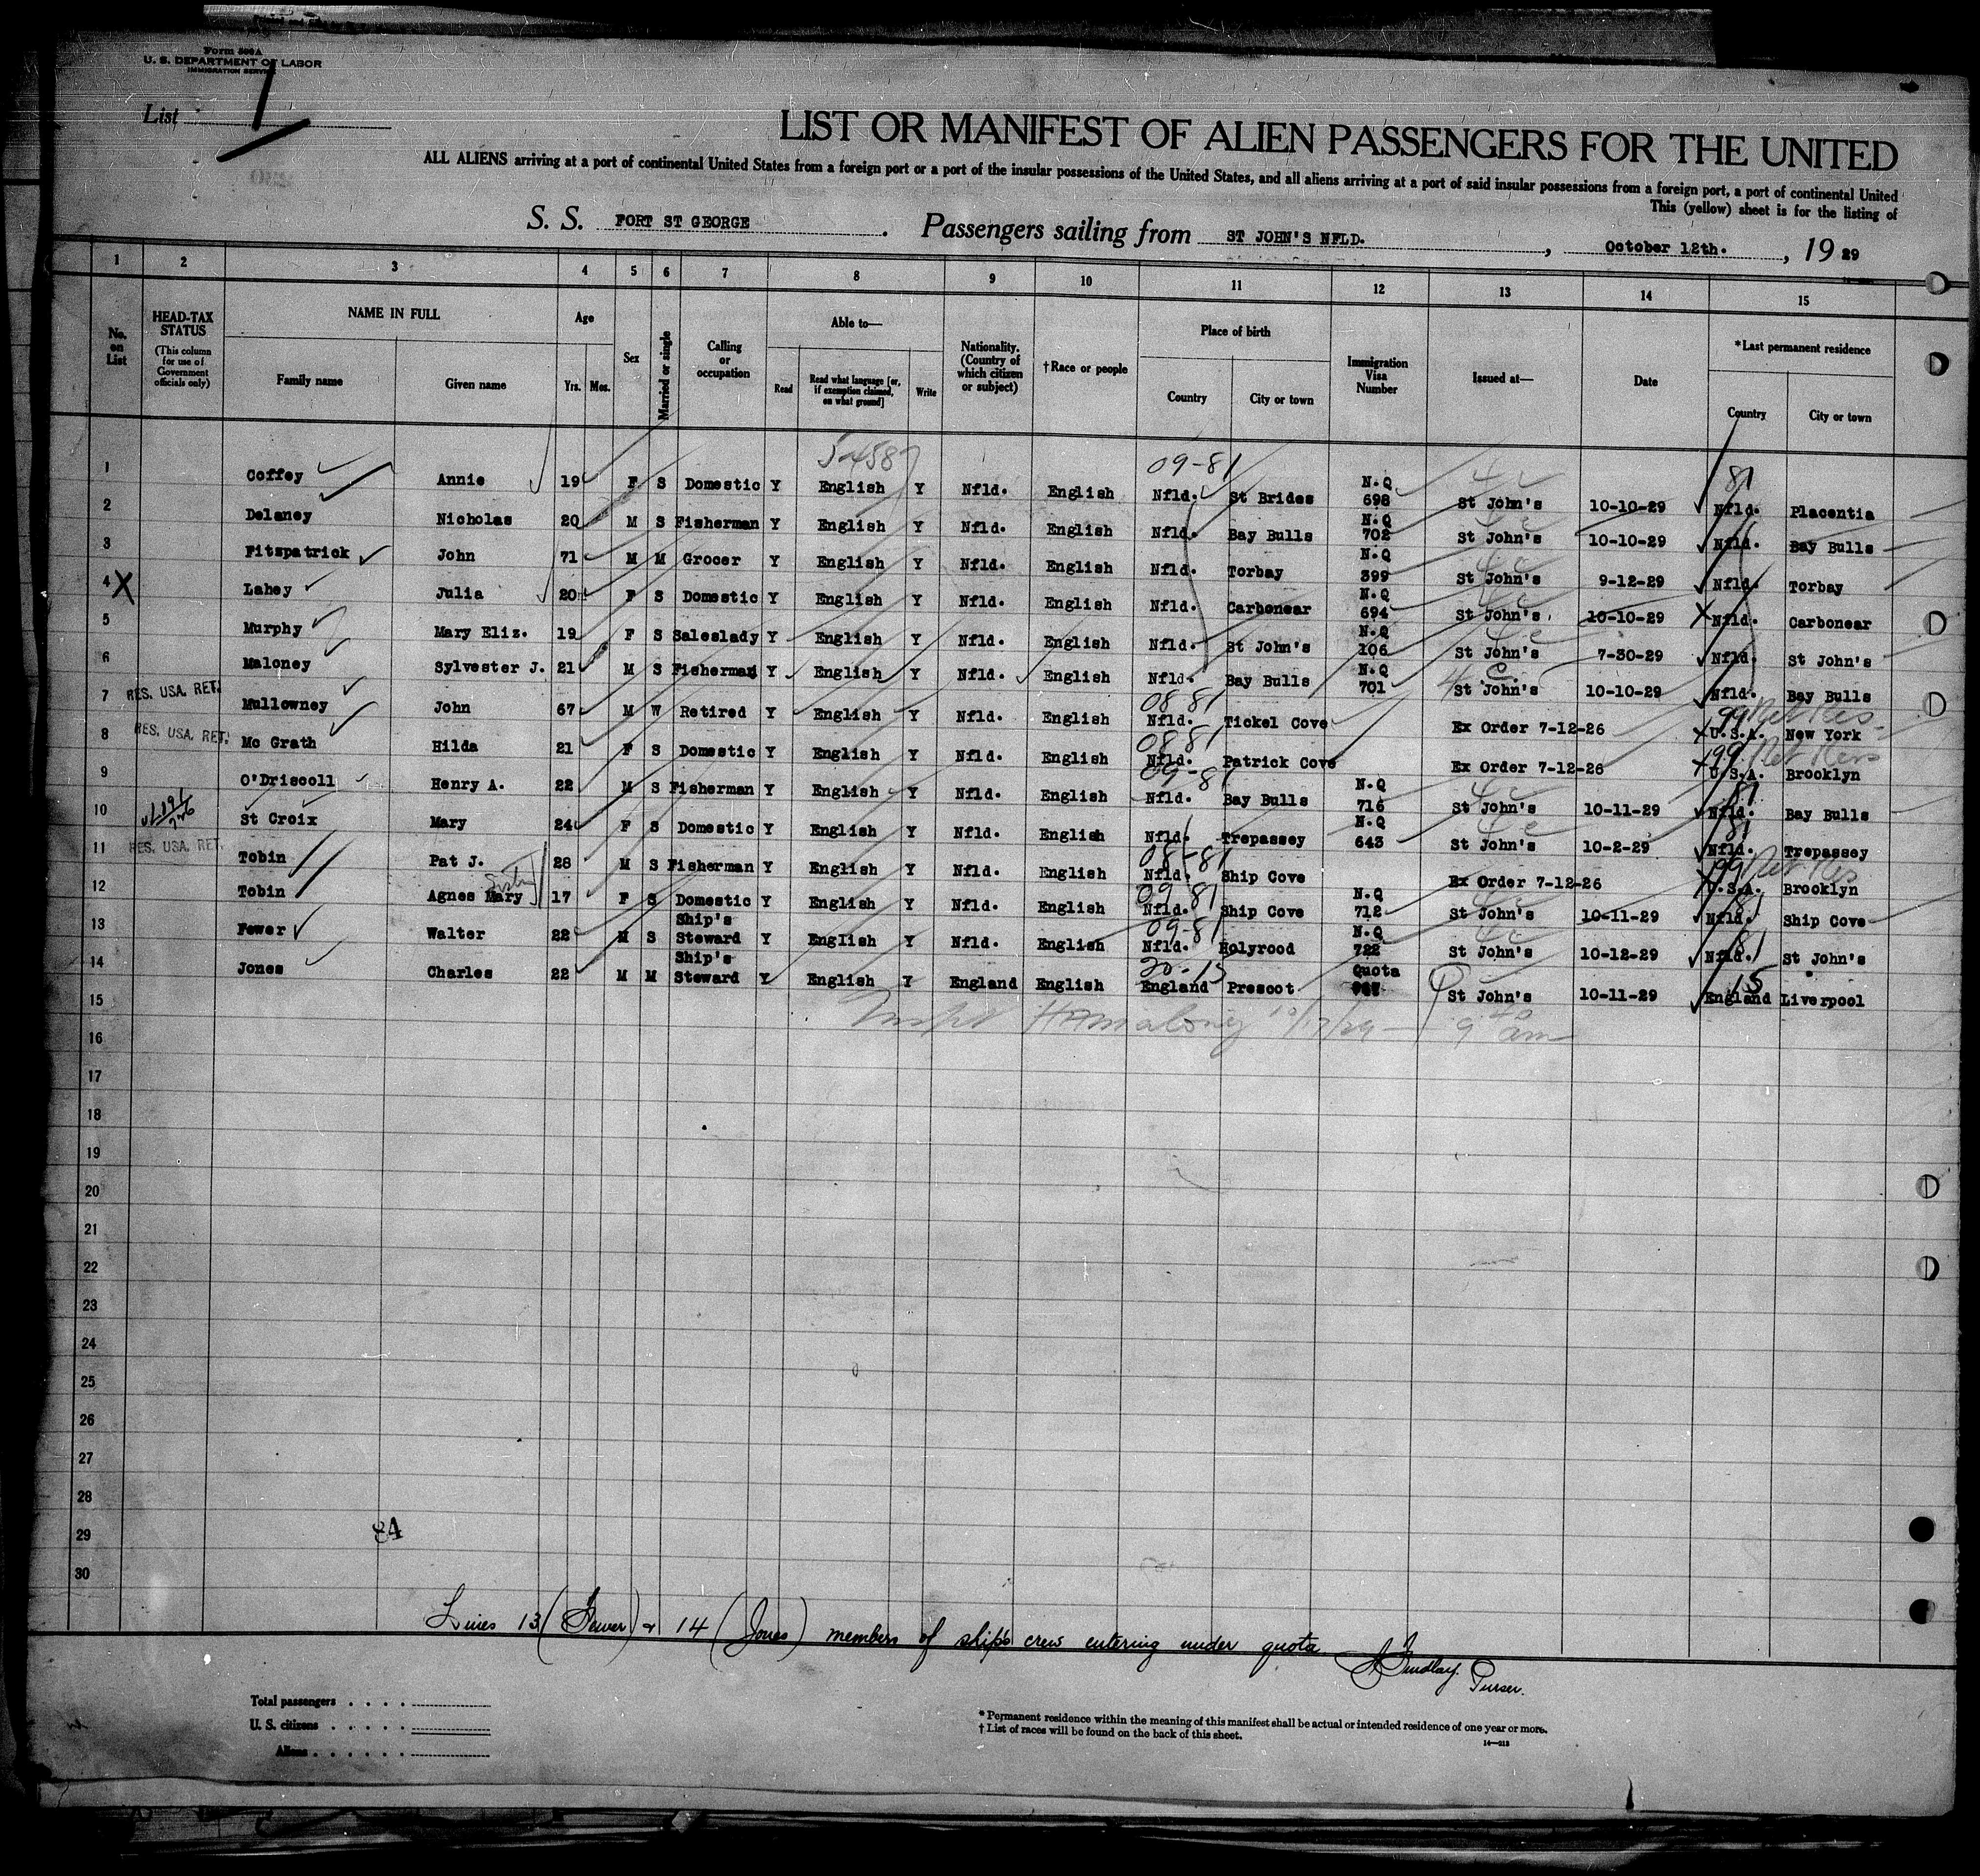 Form 500A
U. S. DEPARTMENT OF LABOR
IMMIGRATION SERVICE
List 1
LIST OR MANIFEST OF ALIEN PASSENGERS FOR THE UNITED
ALL ALIENS arriving at a port of continental United States from a foreign port or a port of the insular possessions of the United States, and all aliens arriving at a port of said insular possessions from a foreign port, a port of continental United
This (yellow) sheet is for the listing of
S. S. FORT ST GEORGE . Passengers sailing from ST JOHN'S NFLD. , October 12th. , 19 29
1 2 3 4 5 6 7 8 9 10 11 12 13 14 15
No. on List
HEAD-TAX STATUS
(This column for use of Government officials only)
NAME IN FULL
Family name Given name
Age
Yrs. Mos.
Sex
Married or single
Calling or occupation
Able to—
Read
Read what language [or, if exemption claimed, on what ground]
Write
Nationality. (Country of which citizen or subject)
†Race or people
Place of birth
Country City or town
Immigration Visa Number
Issued at—
Date
*Last permanent residence
Country City or town
5-4587 09-81 81
1 Coffey Annie 19 F S Domestic Y English Y Nfld. English Nfld. St Brides N.Q 698 St John's 10-10-29 Nfld. Placentia
2 Delaney Nicholas 20 M S Fisherman Y English Y Nfld. English Nfld. Bay Bulls N.Q 702 St John's 10-10-29 Nfld. Bay Bulls
3 Fitzpatrick John 71 M M Grocer Y English Y Nfld. English Nfld. Torbay N.Q 399 St John's 9-12-29 Nfld. Torbay
4 X Lahey Julia 20 F S Domestic Y English Y Nfld. English Nfld. Carbonear N.Q 694 St John's 10-10-29 Nfld. Carbonear
5 Murphy Mary Eliz. 19 F S Saleslady Y English Y Nfld. English Nfld. St John's N.Q 106 St John's 7-30-29 Nfld. St John's
6 Maloney Sylvester J. 21 M S Fisherman Y English Y Nfld. English Nfld. Bay Bulls N.Q 701 St John's 10-10-29 Nfld. Bay Bulls
7 RES. USA. RET. Mullowney John 67 M W Retired Y English Y Nfld. English 08-81 Nfld. Tickel Cove Ex Order 7-12-26 99 Ret Res U.S.A. New York
8 RES. USA. RET. Mc Grath Hilda 21 F S Domestic Y English Y Nfld. English 08-81 Nfld. Patrick Cove Ex Order 7-12-26 99 Ret Res U.S.A. Brooklyn
9 O'Driscoll Henry A. 22 M S Fisherman Y English Y Nfld. English 09-81 Nfld. Bay Bulls N.Q 716 St John's 10-11-29 81 Nfld. Bay Bulls
10 St Croix Mary 24 F S Domestic Y English Y Nfld. English Nfld. Trepassey N.Q 643 St John's 10-2-29 81 Nfld. Trepassey
11 RES. USA. RET. Tobin Pat J. 28 M S Fisherman Y English Y Nfld. English 08-81 Nfld. Ship Cove Ex Order 7-12-26 99 Ret Res U.S.A. Brooklyn
12 Tobin Agnes Mary Sister 17 F S Domestic Y English Y Nfld. English 09-81 Nfld. Ship Cove N.Q 712 St John's 10-11-29 81 Nfld. Ship Cove
13 Fewer Walter 22 M S Ship's Steward Y English Y Nfld. English 09-81 Nfld. Holyrood N.Q 722 St John's 10-12-29 81 Nfld. St John's
14 Jones Charles 22 M M Ship's Steward Y English Y England English 20-15 England Prescot Quota St John's 10-11-29 15 England Liverpool
15
16
17
18
19
20
21
22
23
24
25
26
27
28
29
30
84
Lines 13 (Fewer) & 14 (Jones) members of ship's crew entering under quota
Findlay. Purser.
Total passengers
U. S. citizens
Aliens
* Permanent residence within the meaning of this manifest shall be actual or intended residence of one year or more.
† List of races will be found on the back of this sheet.
14—213